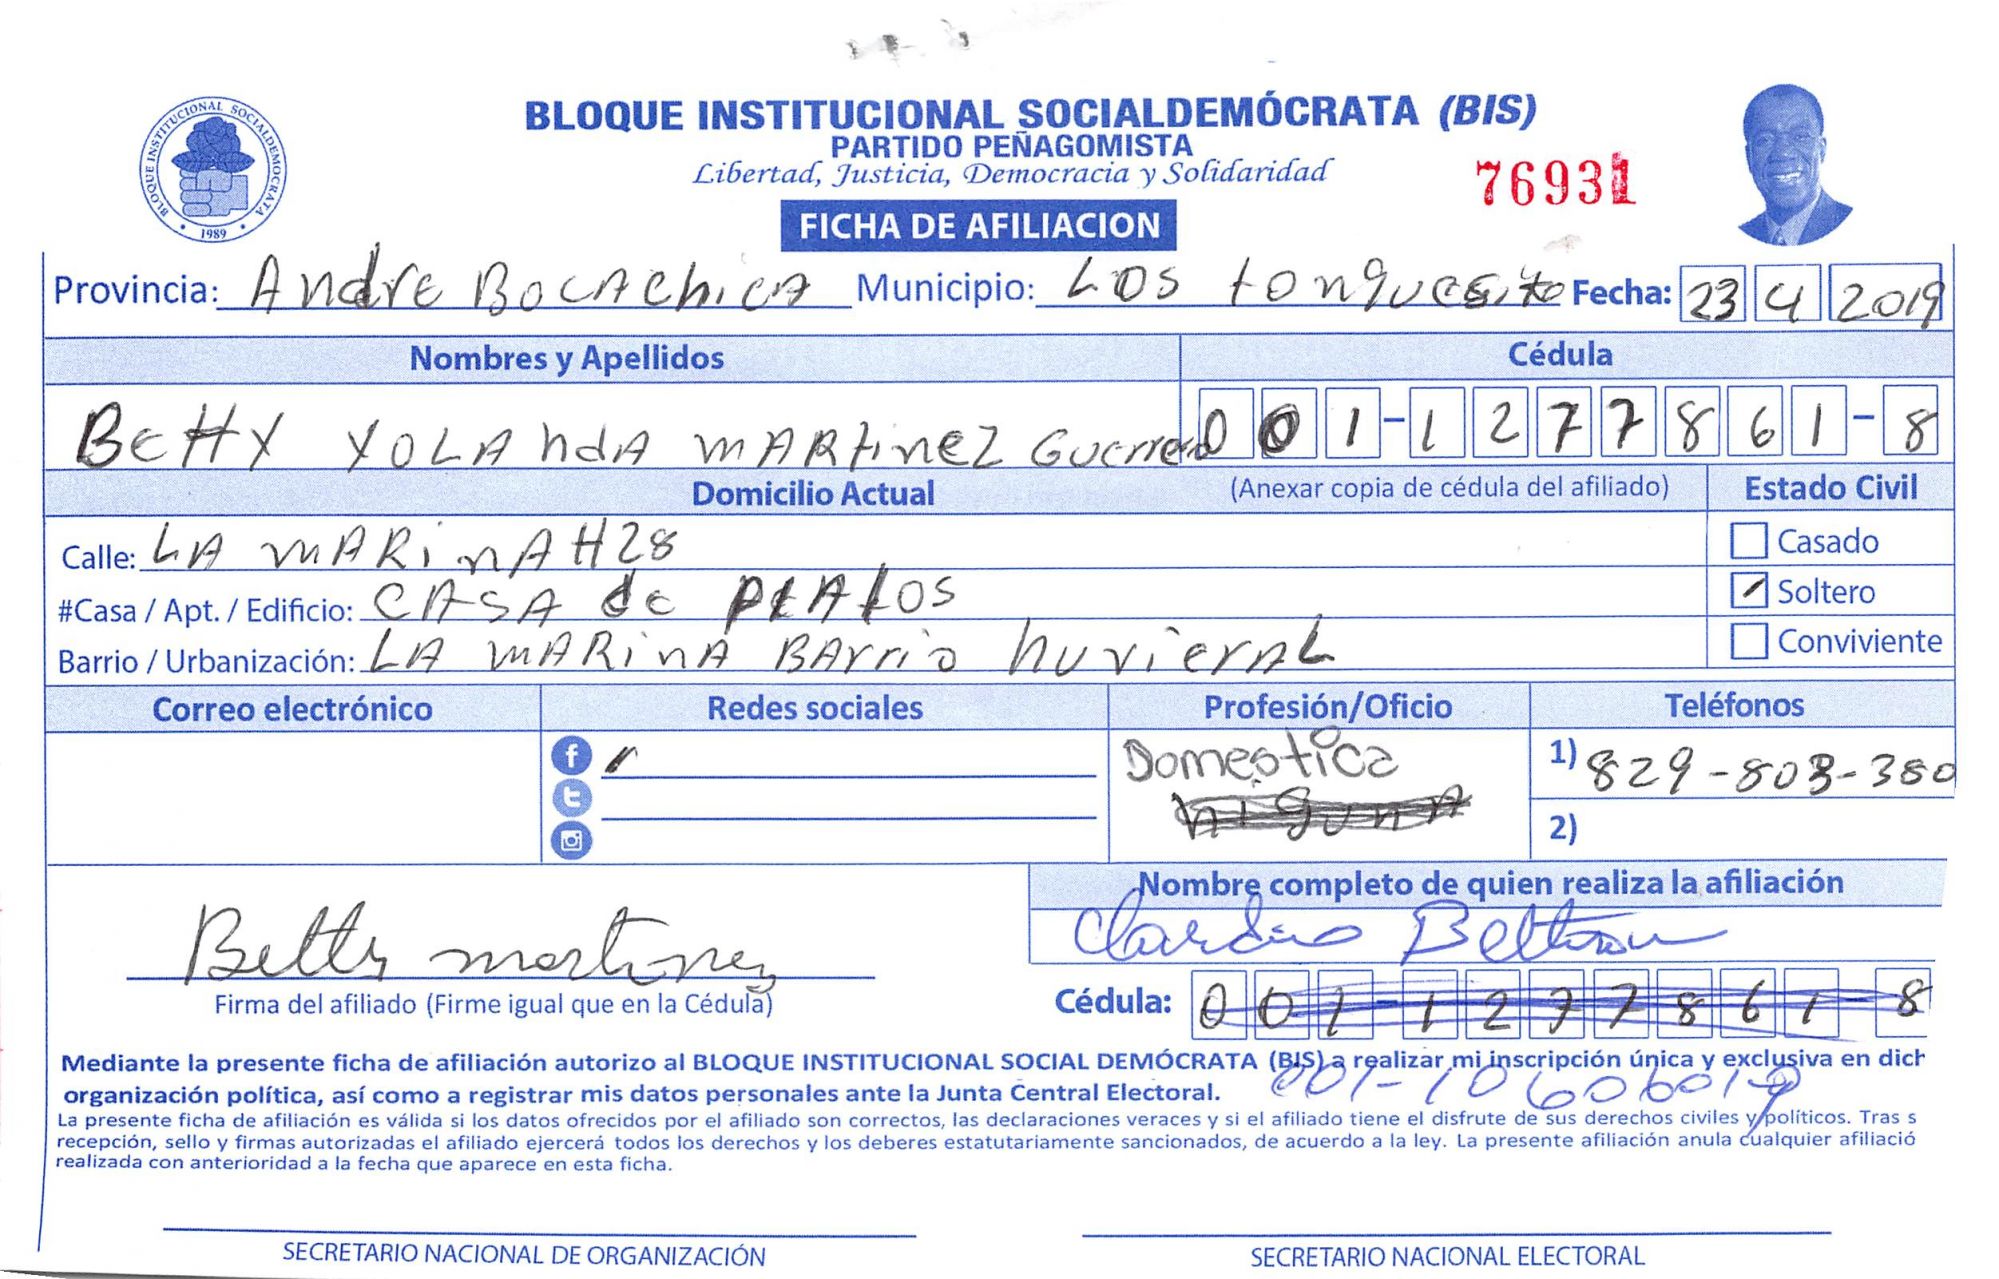 BLOQUE INSTITUCIONAL SOCIALDEMOCRATA
1989
BLOQUE INSTITUCIONAL SOCIALDEMÓCRATA (BIS)
PARTIDO PEÑAGOMISTA
Libertad, Justicia, Democracia y Solidaridad
76931
FICHA DE AFILIACION
Provincia: Andre BocAchicA Municipio: Los tonguesito Fecha: 23 4 2019
Nombres y Apellidos Cédula
BEttY YOLAndA mARtinEZ Guerrero 001-1277861-8
Domicilio Actual (Anexar copia de cédula del afiliado) Estado Civil
Calle: LA mARinA #28 Casado
#Casa / Apt. / Edificio: CASA de PLAtOS Soltero
Barrio / Urbanización: LA mARinA BArrio huviernL Conviviente
Correo electrónico Redes sociales Profesión/Oficio Teléfonos
Domestica 1) 829-803-380
nigunA 2)
Nombre completo de quien realiza la afiliación
Betty martinez Beltran
Firma del afiliado (Firme igual que en la Cédula) Cédula: 001-1277861-8
Mediante la presente ficha de afiliación autorizo al BLOQUE INSTITUCIONAL SOCIAL DEMÓCRATA (BIS) a realizar mi inscripción única y exclusiva en dich
organización política, así como a registrar mis datos personales ante la Junta Central Electoral.
La presente ficha de afiliación es válida si los datos ofrecidos por el afiliado son correctos, las declaraciones veraces y si el afiliado tiene el disfrute de sus derechos civiles y políticos. Tras s
recepción, sello y firmas autorizadas el afiliado ejercerá todos los derechos y los deberes estatutariamente sancionados, de acuerdo a la ley. La presente afiliación anula cualquier afiliació
realizada con anterioridad a la fecha que aparece en esta ficha.
SECRETARIO NACIONAL DE ORGANIZACIÓN SECRETARIO NACIONAL ELECTORAL